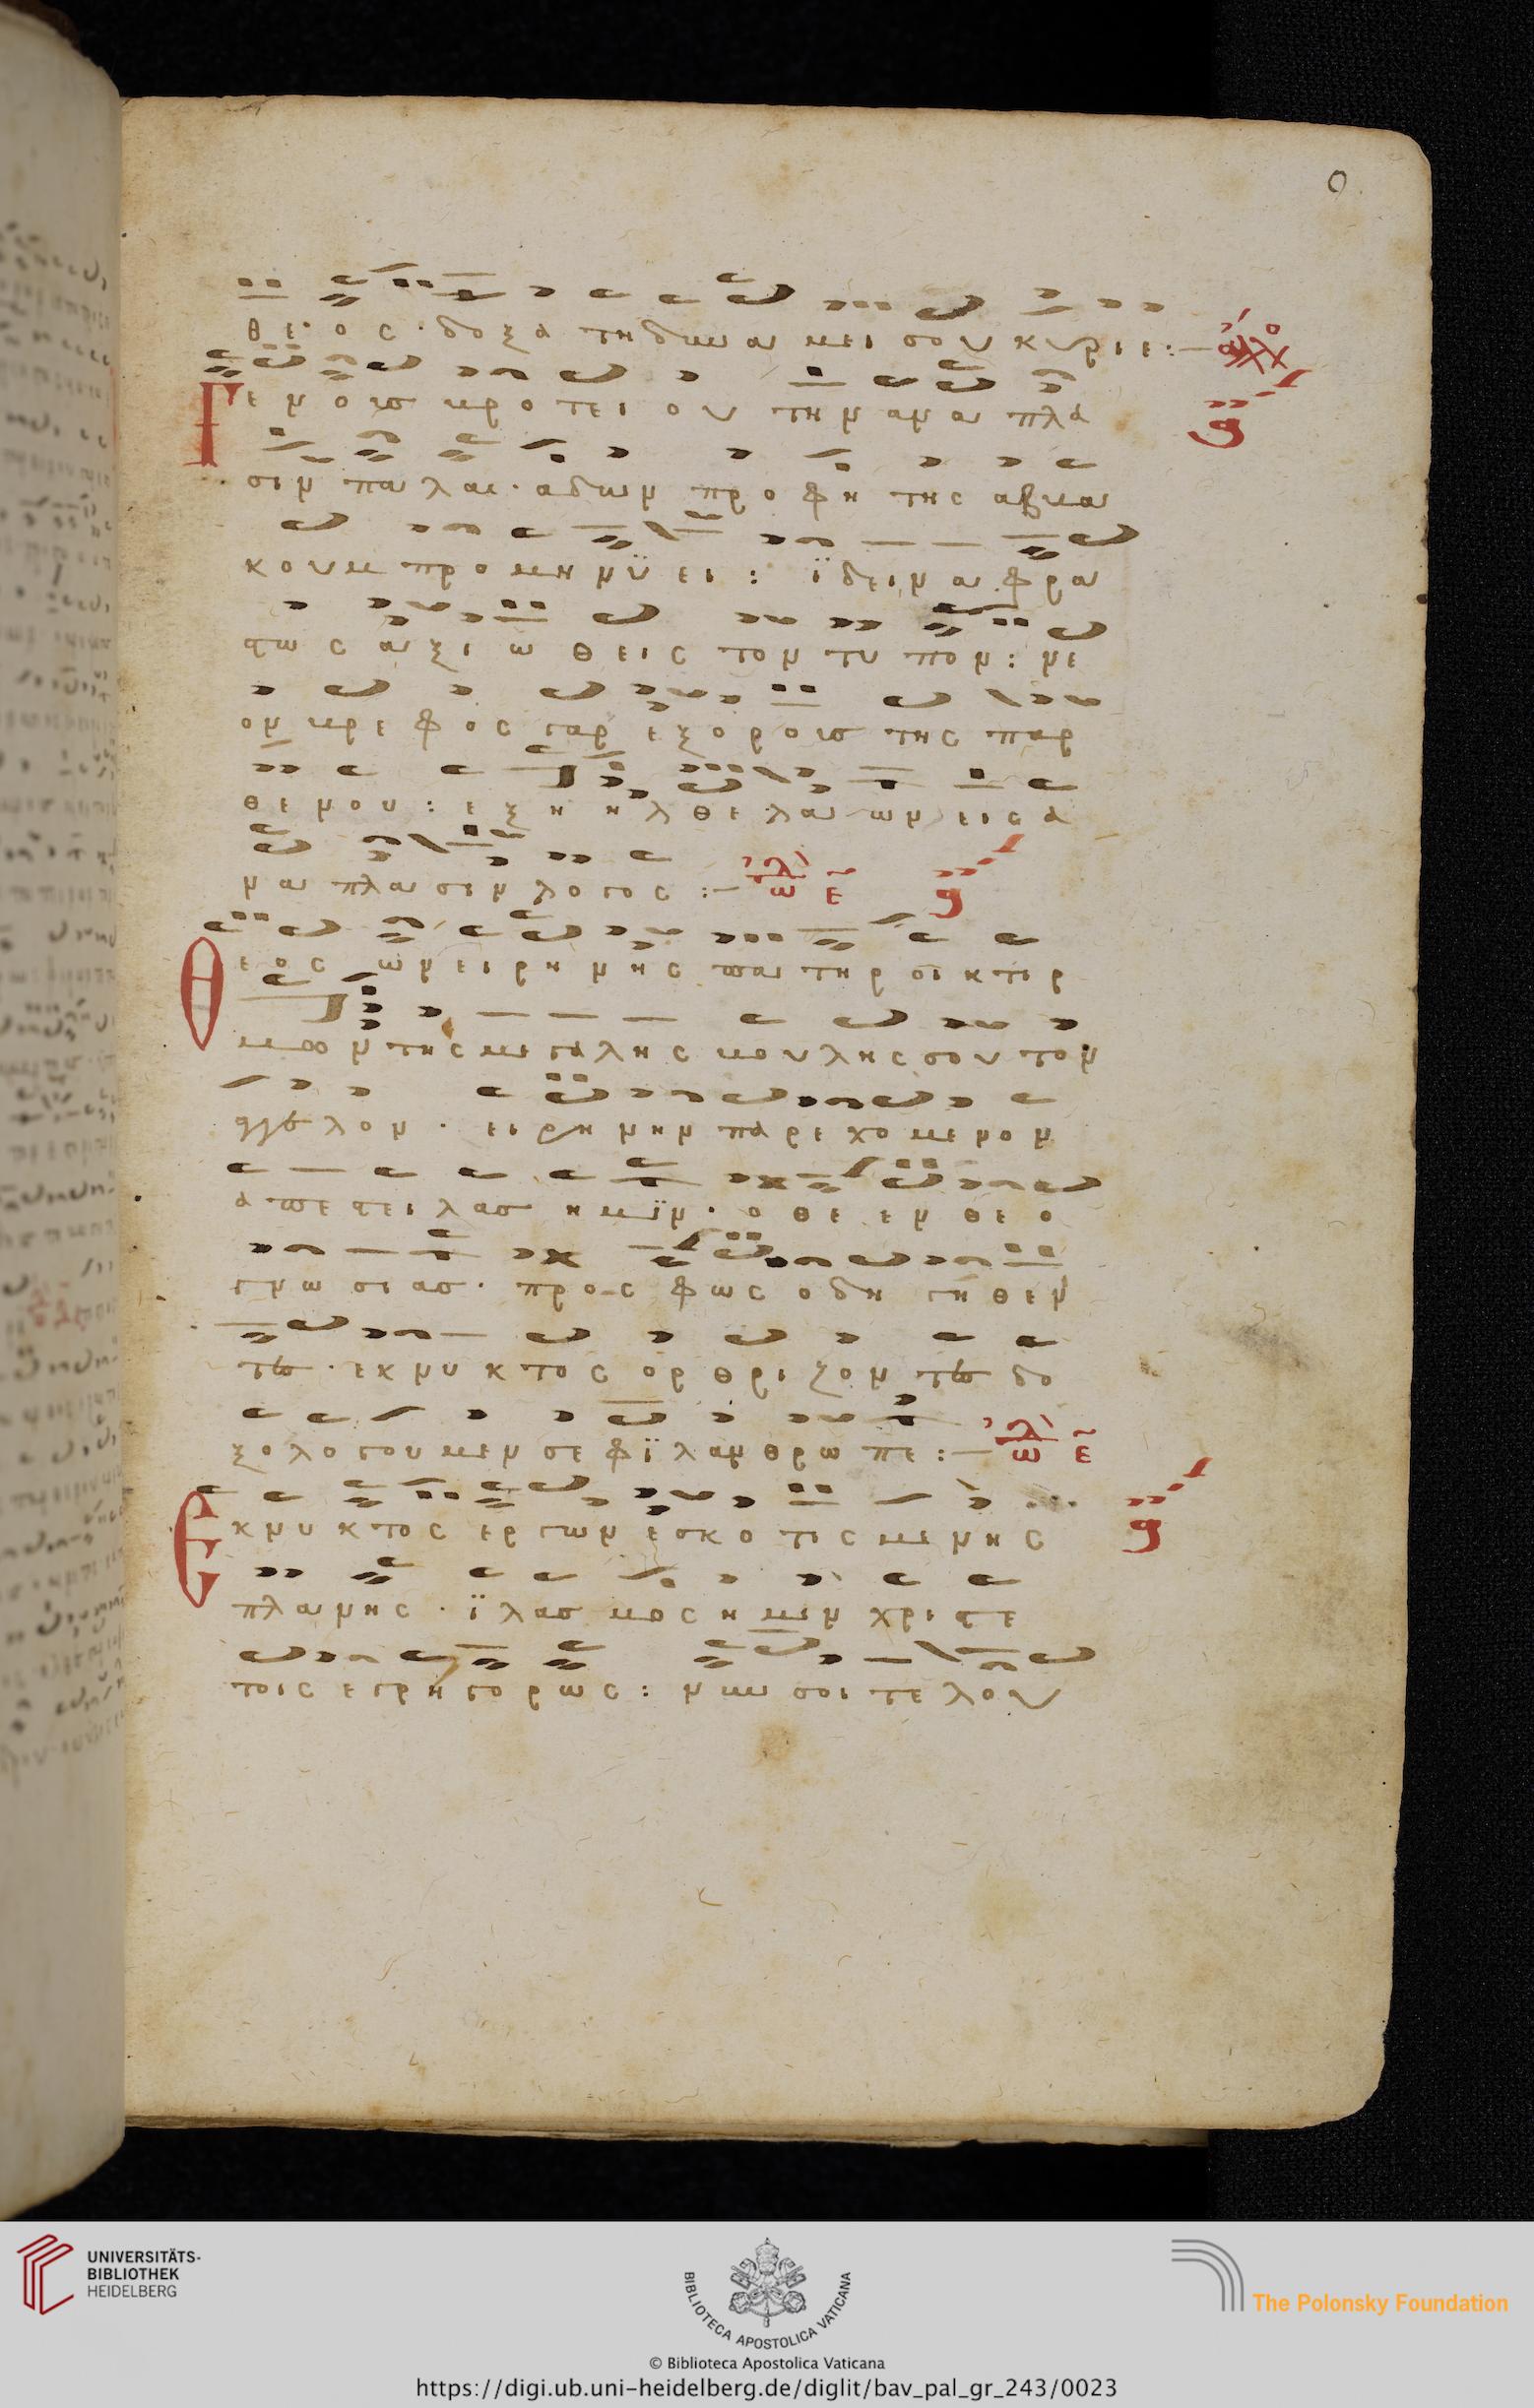 θεος · δοξα τη δυναμει σου κυριε :–
Γενους βροτειου την ανα πλα
σιν παλαι · αδων προφητης αββα
κουμ προμηνϋει : ϊδειν αφρα
στως αξιωθεις τον τυπον : νε
ον βρεφος γαρ εξ ορους της παρ
θενου : εξηηλθε λαων εις α
ναπλασιν λογος :–
Θεος ων ειρηνης πατηρ οικτιρ
μων της μεγαλης βουλης σου τον
αγγελον · ειρηνην παρεχομενον
απεστειλας ημϊν · οθεν θεο
γνωσιας · προς φως οδηγηθεν
τες · εκ νυκτος ορθριζοντες δο
ξολογουμεν σε φϊλανθρωπε :–
Εκ νυκτος εργων εσκοτισμενης
πλανης · ϊλασμος ημιν χριστε
τοις εγρηγορως : νυν σοι τελου
UNIVERSITÄTS-
BIBLIOTHEK
HEIDELBERG
BIBLIOTECA APOSTOLICA VATICANA
The Polonsky Foundation
© Biblioteca Apostolica Vaticana
https://digi.ub.uni-heidelberg.de/diglit/bav_pal_gr_243/0023